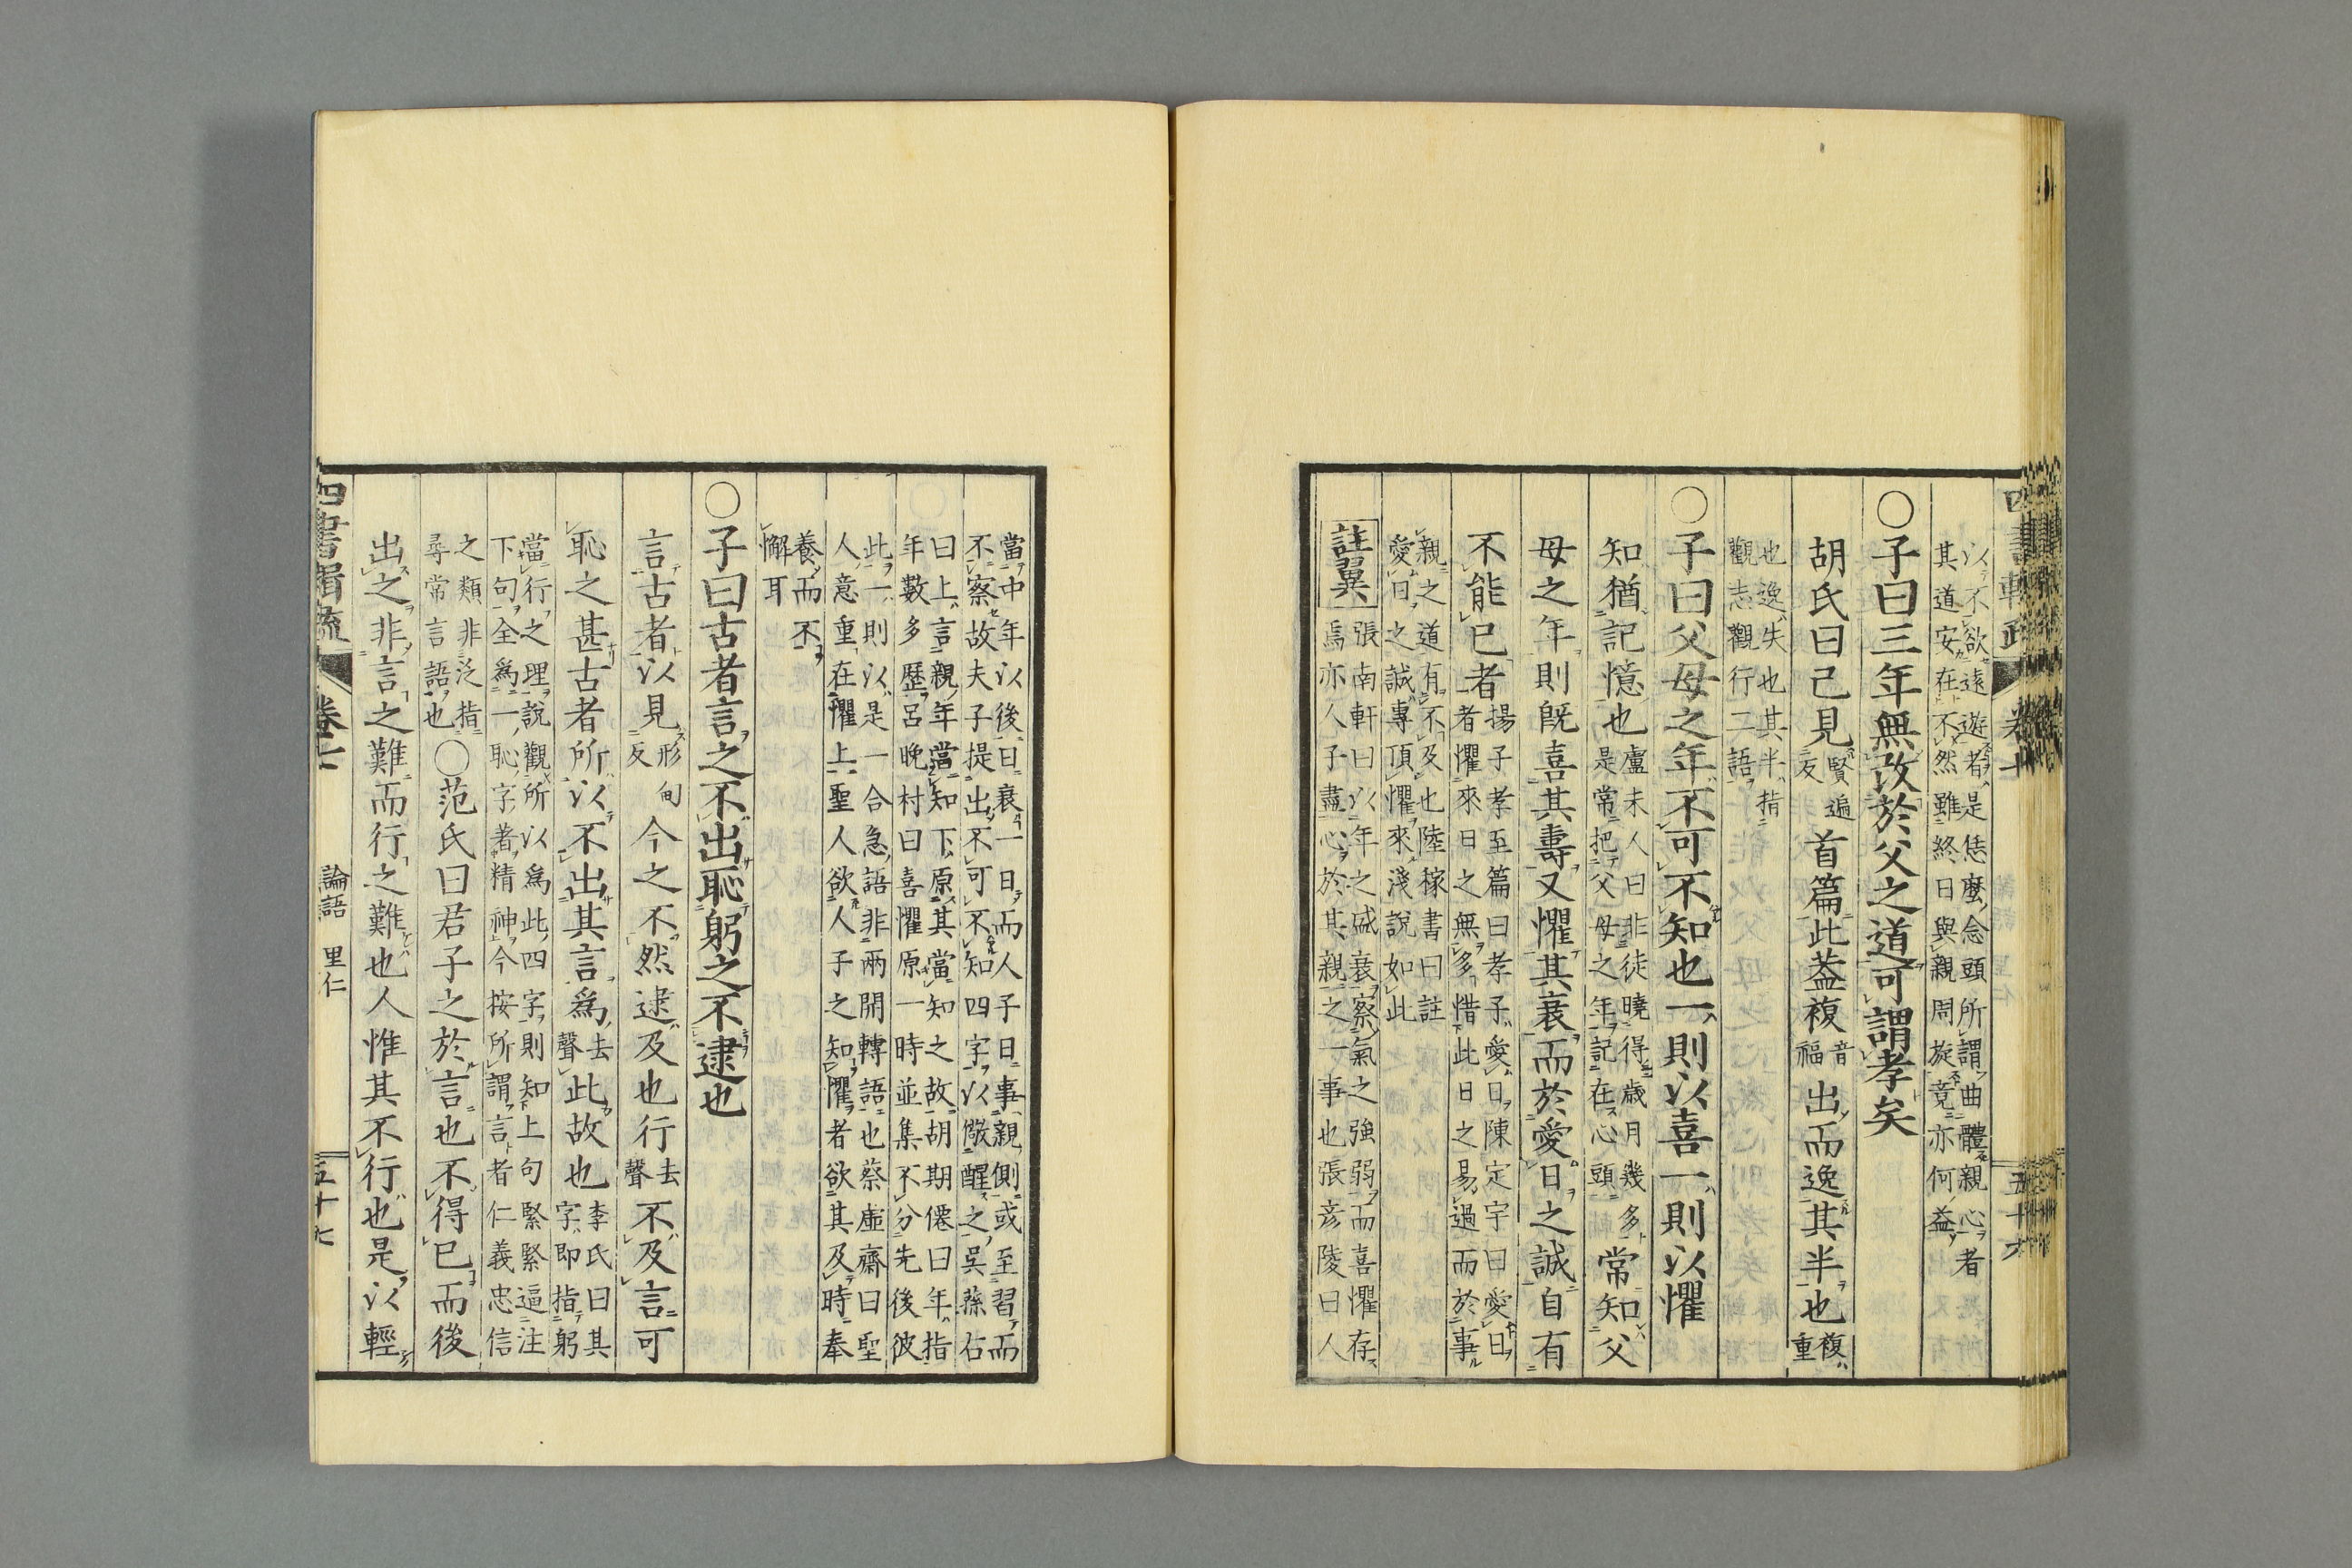 以不欲遠遊者是恁麼念頭所謂曲體親心者
其道安在不然雖終日與親周旋竟亦何益
○子曰三年無改於父之道可謂孝矣
胡氏曰已見賢遍反首篇此蓋複音福出而逸其半也複重
也逸失也其半指
觀志觀行二語
○子曰父母之年不可不知也一則以喜一則以懼
知猶記憶也盧未人曰非徒曉得歲月幾多是常把父母之年記在心頭常知父
母之年則既喜其壽又懼其衰而於愛日之誠自有
不能已者揚子孝至篇曰孝子愛日陳定宇曰愛日者懼來日之無多惜此日之易過而於事
親之道有不及也陸稼書曰註
愛日之誠專頂懼來淺說如此
註翼張南軒曰以年之盛衰察氣之強弱而喜懼存焉亦人子盡心於其親之一事也張彦陵曰人
四書輯疏 卷七 五十六
當中年以後日衰一日而人子日事親側或至習而
不察故夫子提出不可不知四字以儆醒之吳蓀右
曰上言親年當知下原其當知之故胡期僊曰年指
年數多歷呂晚村曰喜懼原一時並集不分先後彼
此一則以是一合急語非兩開轉語也蔡虛齋曰聖
人意重在懼上聖人欲人子之知懼者欲其及時奉
養而不
懈耳
○子曰古者言之不出恥躬之不逮也
言古者以見形甸反今之不然逮及也行去聲不及言可
恥之甚古者所以不出其言爲去聲此故也李氏曰其字即指躬
當行之理說觀所以爲此四字則知上句緊緊逼注
下句全爲一恥字著精神今按所謂言者仁義忠信
之類非泛指
尋常言語也○范氏曰君子之於言也不得已而後
出之非言之難而行之難也人惟其不行也是以輕
四書輯疏 卷七 論語 里仁 五十七